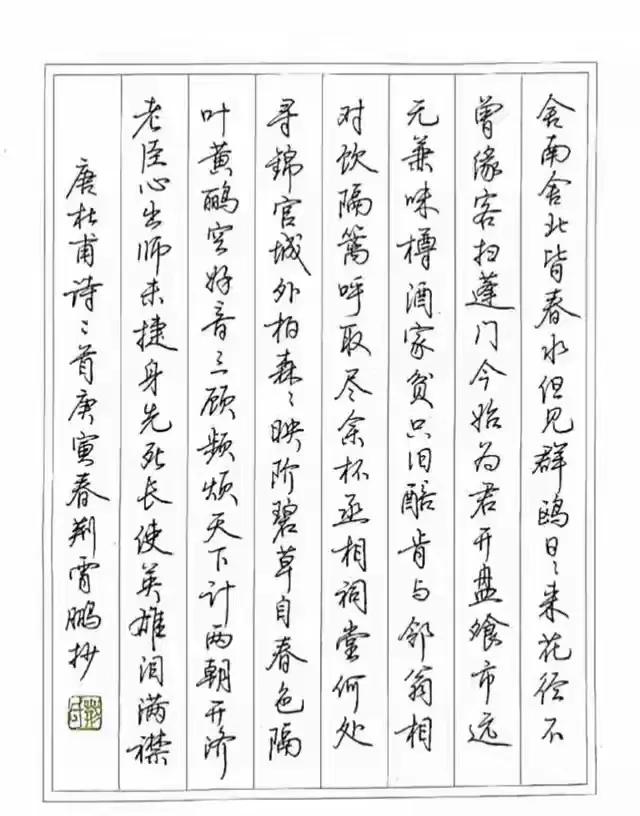 舍南舍北皆春水但见群鸥日〻来花径不
曾缘客扫蓬门今始为君开盘飧市远
无兼味樽酒家贫只旧醅肯与邻翁相
对饮隔篱呼取尽余杯丞相祠堂何处
寻錦官城外柏森〻映阶碧草自春色隔
叶黄鹂空好音三顾频烦天下计两朝开济
老臣心出师未捷身先死长使英雄泪满襟
唐杜甫诗二首庚寅春荆霄鹏抄